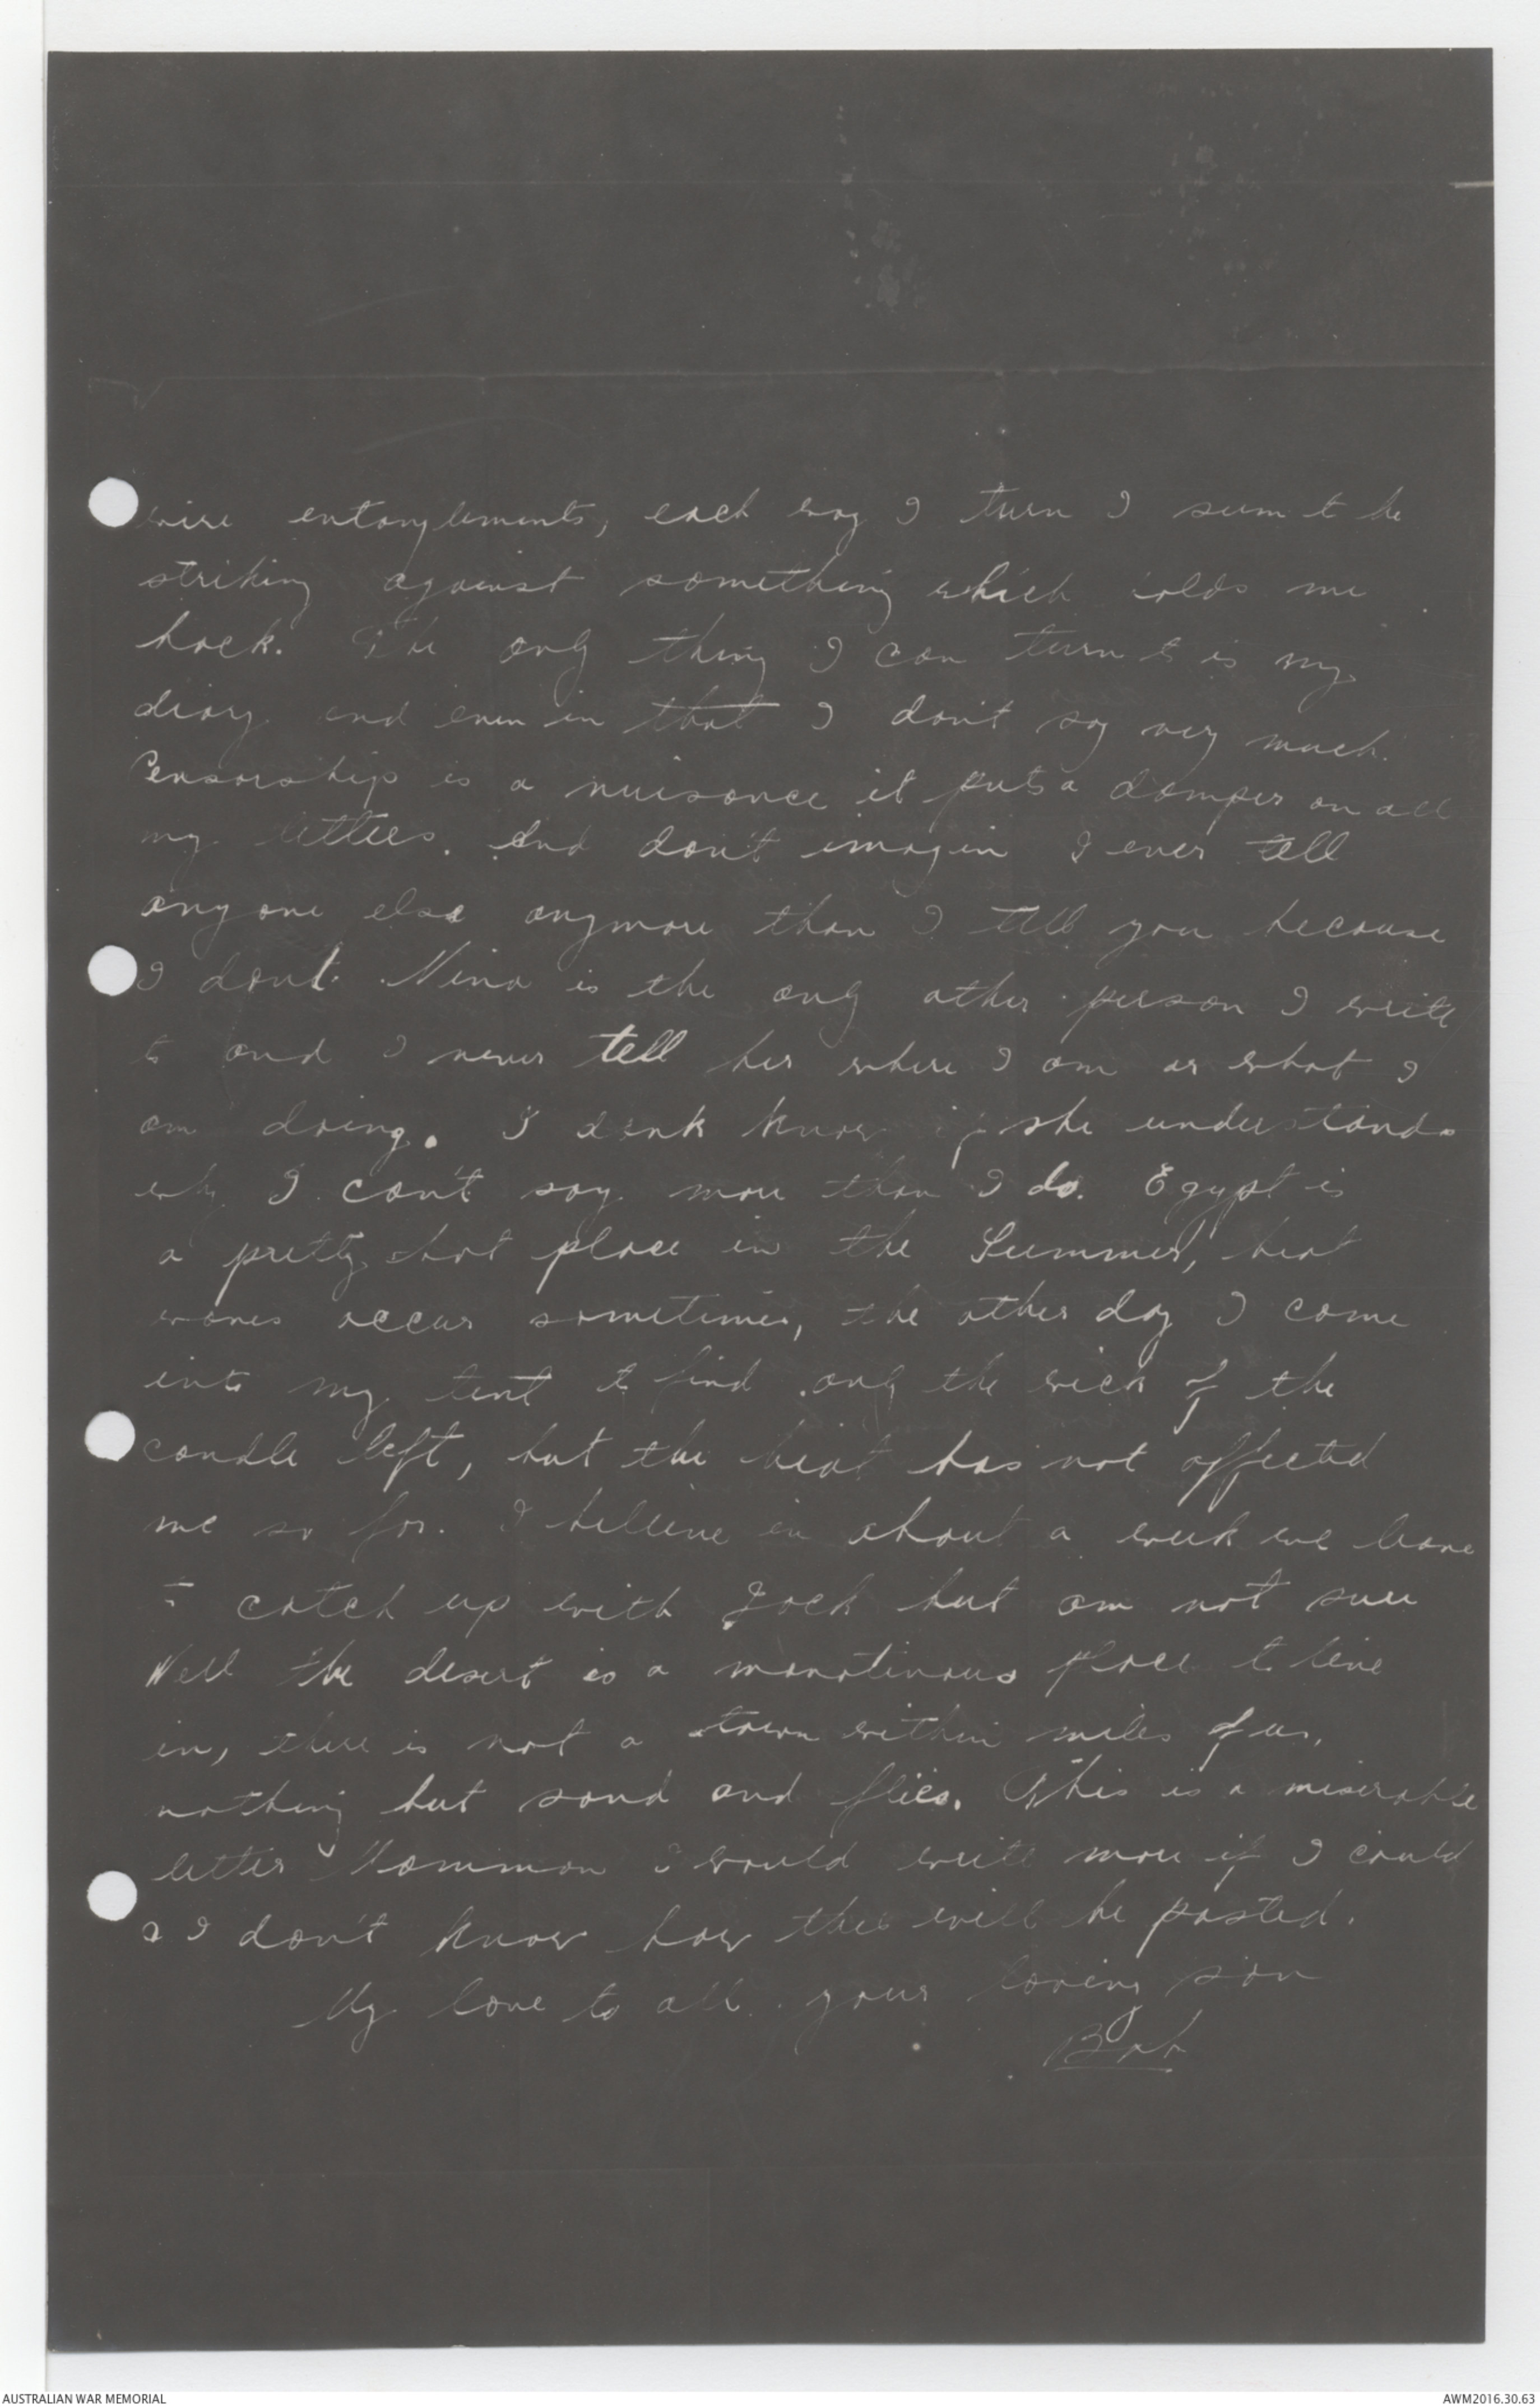 wire entanglements, each way I turn I seem to be
striking against something which holds me
back. The only thing I can turn to is my
diary and even in that I don't say very much.
Censorship is a nuisance it puts a damper on all
my letters. And don't imagin I ever tell
anyone else anymore than I tell you because
I dont. Nina is the only other person I write
to and I never tell her where I am or what I
am doing. I dont know if she understands
why I can't say more than I do. Egypt is
a pretty hot place in the Summer, heat
waves occur sometimes, the other day I came
into my tent to find only the wick of the
candle left, but the heat has not affected
me so far. I believe in about a week we leave
to catch up with Jack but am not sure
Well the desert is a monotinous place to live
in, there is not a town within miles of us,
nothing but sand and flies. This is a miserable
letter Mamman I would write more if I could
I don't know how this will be posted.
My love to all. your loving son
Bob
AUSTRALIAN WAR MEMORIAL
AWM2016.30.63